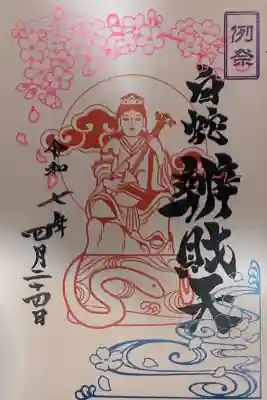 例祭
白蛇
辨財天
令和七年
四月二十四日